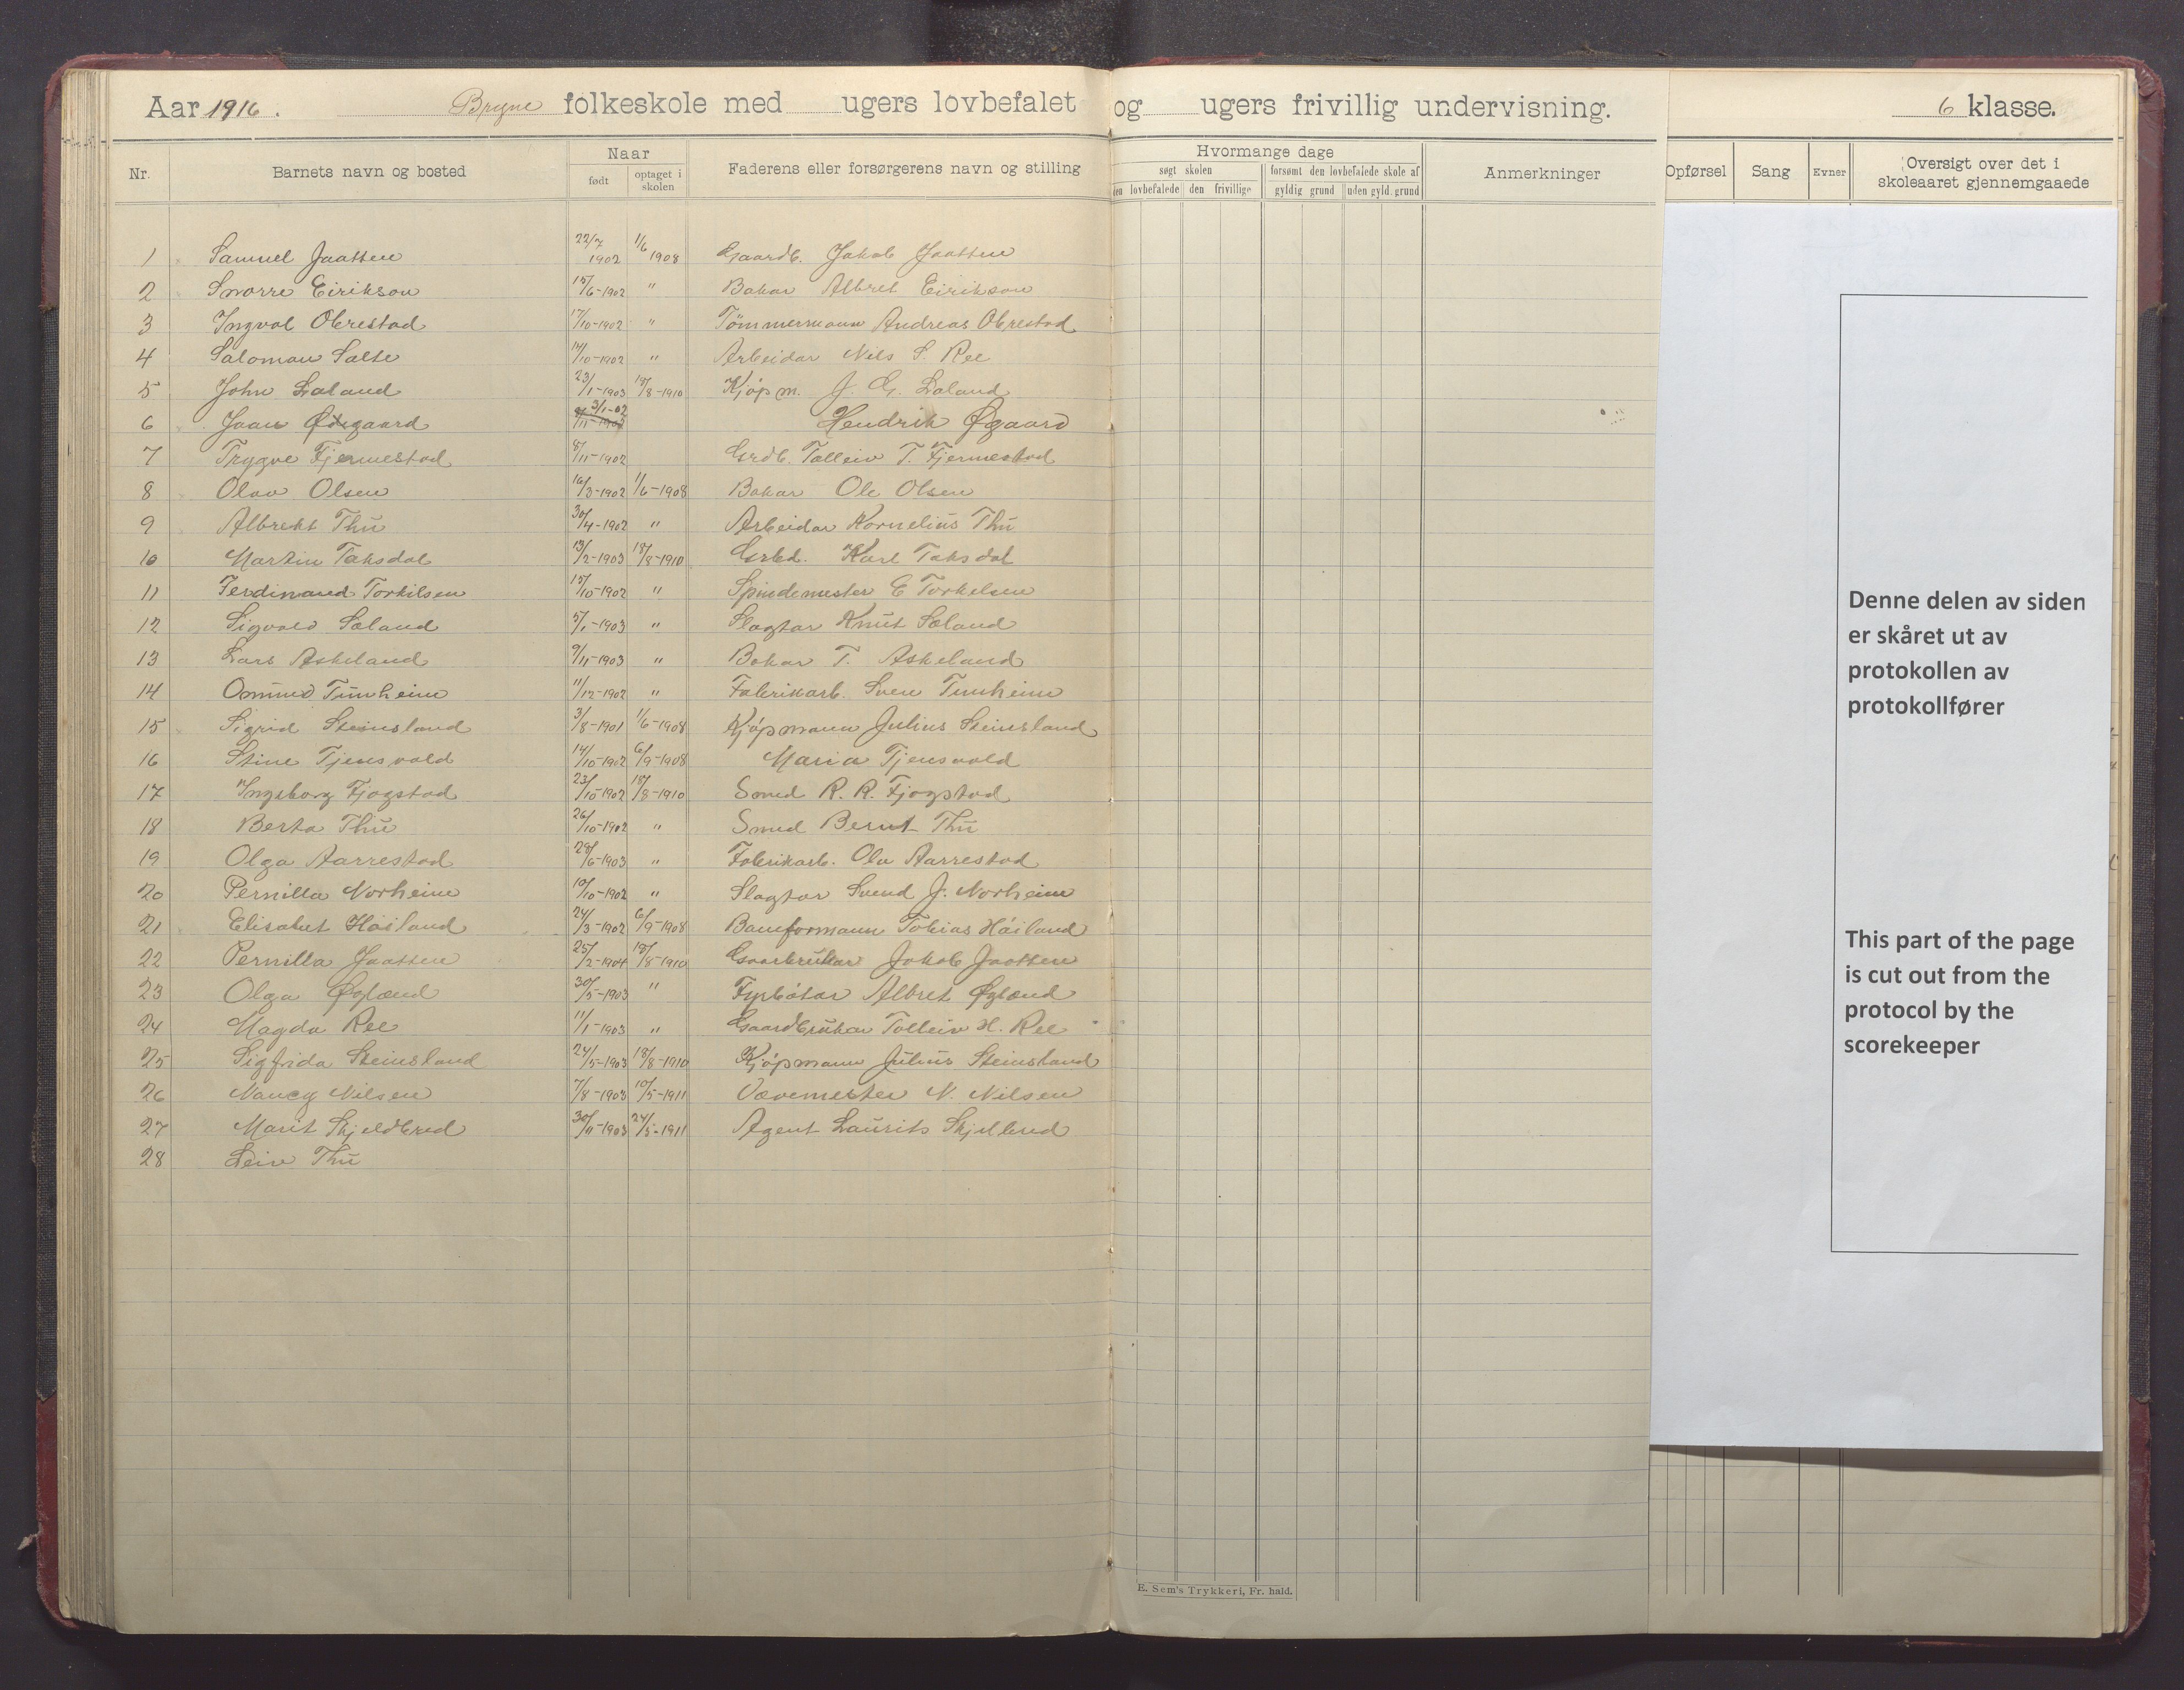 Aar 1916. Bryne folkeskole med ugers lovbefalet og ugers frivillig undervisning. 6 klasse.
Nr. Barnets navn og bosted Naar født optaget i skolen Faderens eller forsørgerens navn og stilling Hvormange dage søgt skolen den lovbefalede den frivillige forsømt den lovbefalede skole af gyldig grund uden gyld. grund Anmerkninger Opførsel Sang Evner Oversigt over det i skoleaaret gjennemgaaede
1 Samuel Jaatten 22/7 1902 1/6 1908 Gaardb. Jakob Jaatten
2 Snorre Eirikson 15/6-1902 " Bakar Albret Eirikson
3 Ingval Obrestad 17/10-1902 " Tömmermann Andreas Obrestad
4 Saloman Salte 14/10-1902 " Arbeidar Nils S. Ree
5 John Laland 23/1-1903 18/8-1910 Kjöpm. J. G. Laland
6 Jaan Ødegaard 3/1-02 Hendrik Øgaard
7 Trygve Fjermestad 8/11-1902 Grdb. Talleiv T. Fjermestad
8 Olav Olsen 16/3-1902 1/6-1908 Bakar Ole Olsen
9 Albrekt Thu 30/4-1902 " Arbeidar Kornelius Thu
10 Martin Taksdal 13/2-1903 18/8-1910 Karl Taksdal
11 Ferdinand Torkilsen 15/10-1902 " Spindemester E Torkelsen
12 Sigvald Sæland 5/1-1903 " Slagtar Knut Sæland
13 Lars Askeland 9/11-1903 " Bakar T. Askeland
14 Omund Tunheim 11/12-1902 " Fabrikarb. Sven Tunheim
15 Sigrid Steinsland 3/8-1901 1/6-1908 Kjöpmann Julius Steinsland
16 Stine Tjensvold 14/10-1902 6/9-1908 Maria Tjensvold
17 Ingeborg Fjogstad 23/10-1902 18/8-1910 Smed R. R. Fjogstad
18 Berta Thu 26/10-1902 " Smed Bernt Thu
19 Olga Aarrestad 28/6-1903 " Fabrikarb. Ola Aarrestad
20 Pernilla Norheim 10/10-1902 " Slagtar Svend J. Norheim
21 Elisabet Håiland 24/3-1902 6/9-1908 Baneformann Tobias Håiland
22 Pernilla Jaatten 25/2-1904 18/8-1910 Gaarbrukar Jakob Jaatten
23 Olga Øglænd 30/5-1903 " Fyrbötar Albret Øglænd
24 Magda Ree 11/1-1903 " Gaardbrukar Tolleiv H. Ree
25 Sigfrida Steinsland 24/5-1903 18/8-1910 Kjöpmann Julius Steinsland
26 Nancy Nilsen 7/8-1903 10/5-1911 Vævemester N. Nilsen
27 Marit Skjeldbred 30/11-1903 24/5-1911 Agent Laurits Skjelbred
28 Leiv Thu
E. Sem's Trykkeri, Fr. hald.
Denne delen av siden
er skåret ut av
protokollen av
protokollfører
This part of the page
is cut out from the
protocol by the
scorekeeper